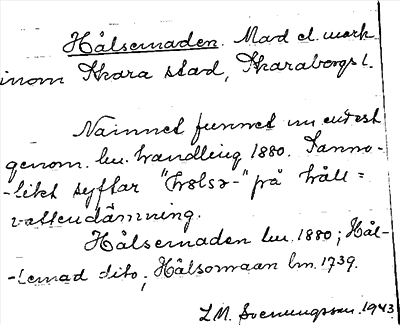 Hålsemaden. Mad el. mark
inom Skara stad, Skaraborgs l.
Namnet funnet nu endast
genom lm. handling 1880. Sanno-
-likt syftar "Hålse-" på håll =
vattendämning.
Hålsemaden lm. 1880; Hål-
-semad dito; Hålsomaan lm. 1739.
L.M. Svenungsson. 1943